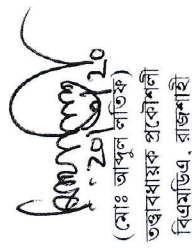 (মোঃ আব্দুল লতিফ)
তত্ত্বাবধায়ক প্রকৌশলী
বিএমডিএ, রাজশাহী